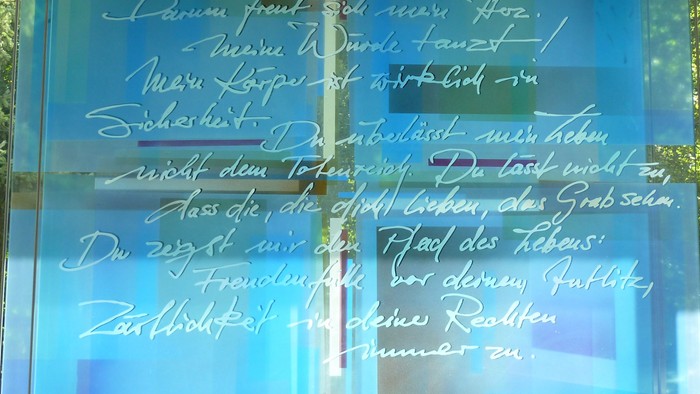 Darum freut sich mein Herz.
Meine Würde tanzt!
Mein Körper ist wirklich in
Sicherheit. Du überlässt mein Leben
nicht dem Totenreich. Du lässt nicht zu,
dass die, die dich lieben, das Grab sehen.
Du zeigst mir den Pfad des Lebens:
Freudenfülle vor deinem Antlitz,
Zärtlichkeit in deiner Rechten
immer zu.